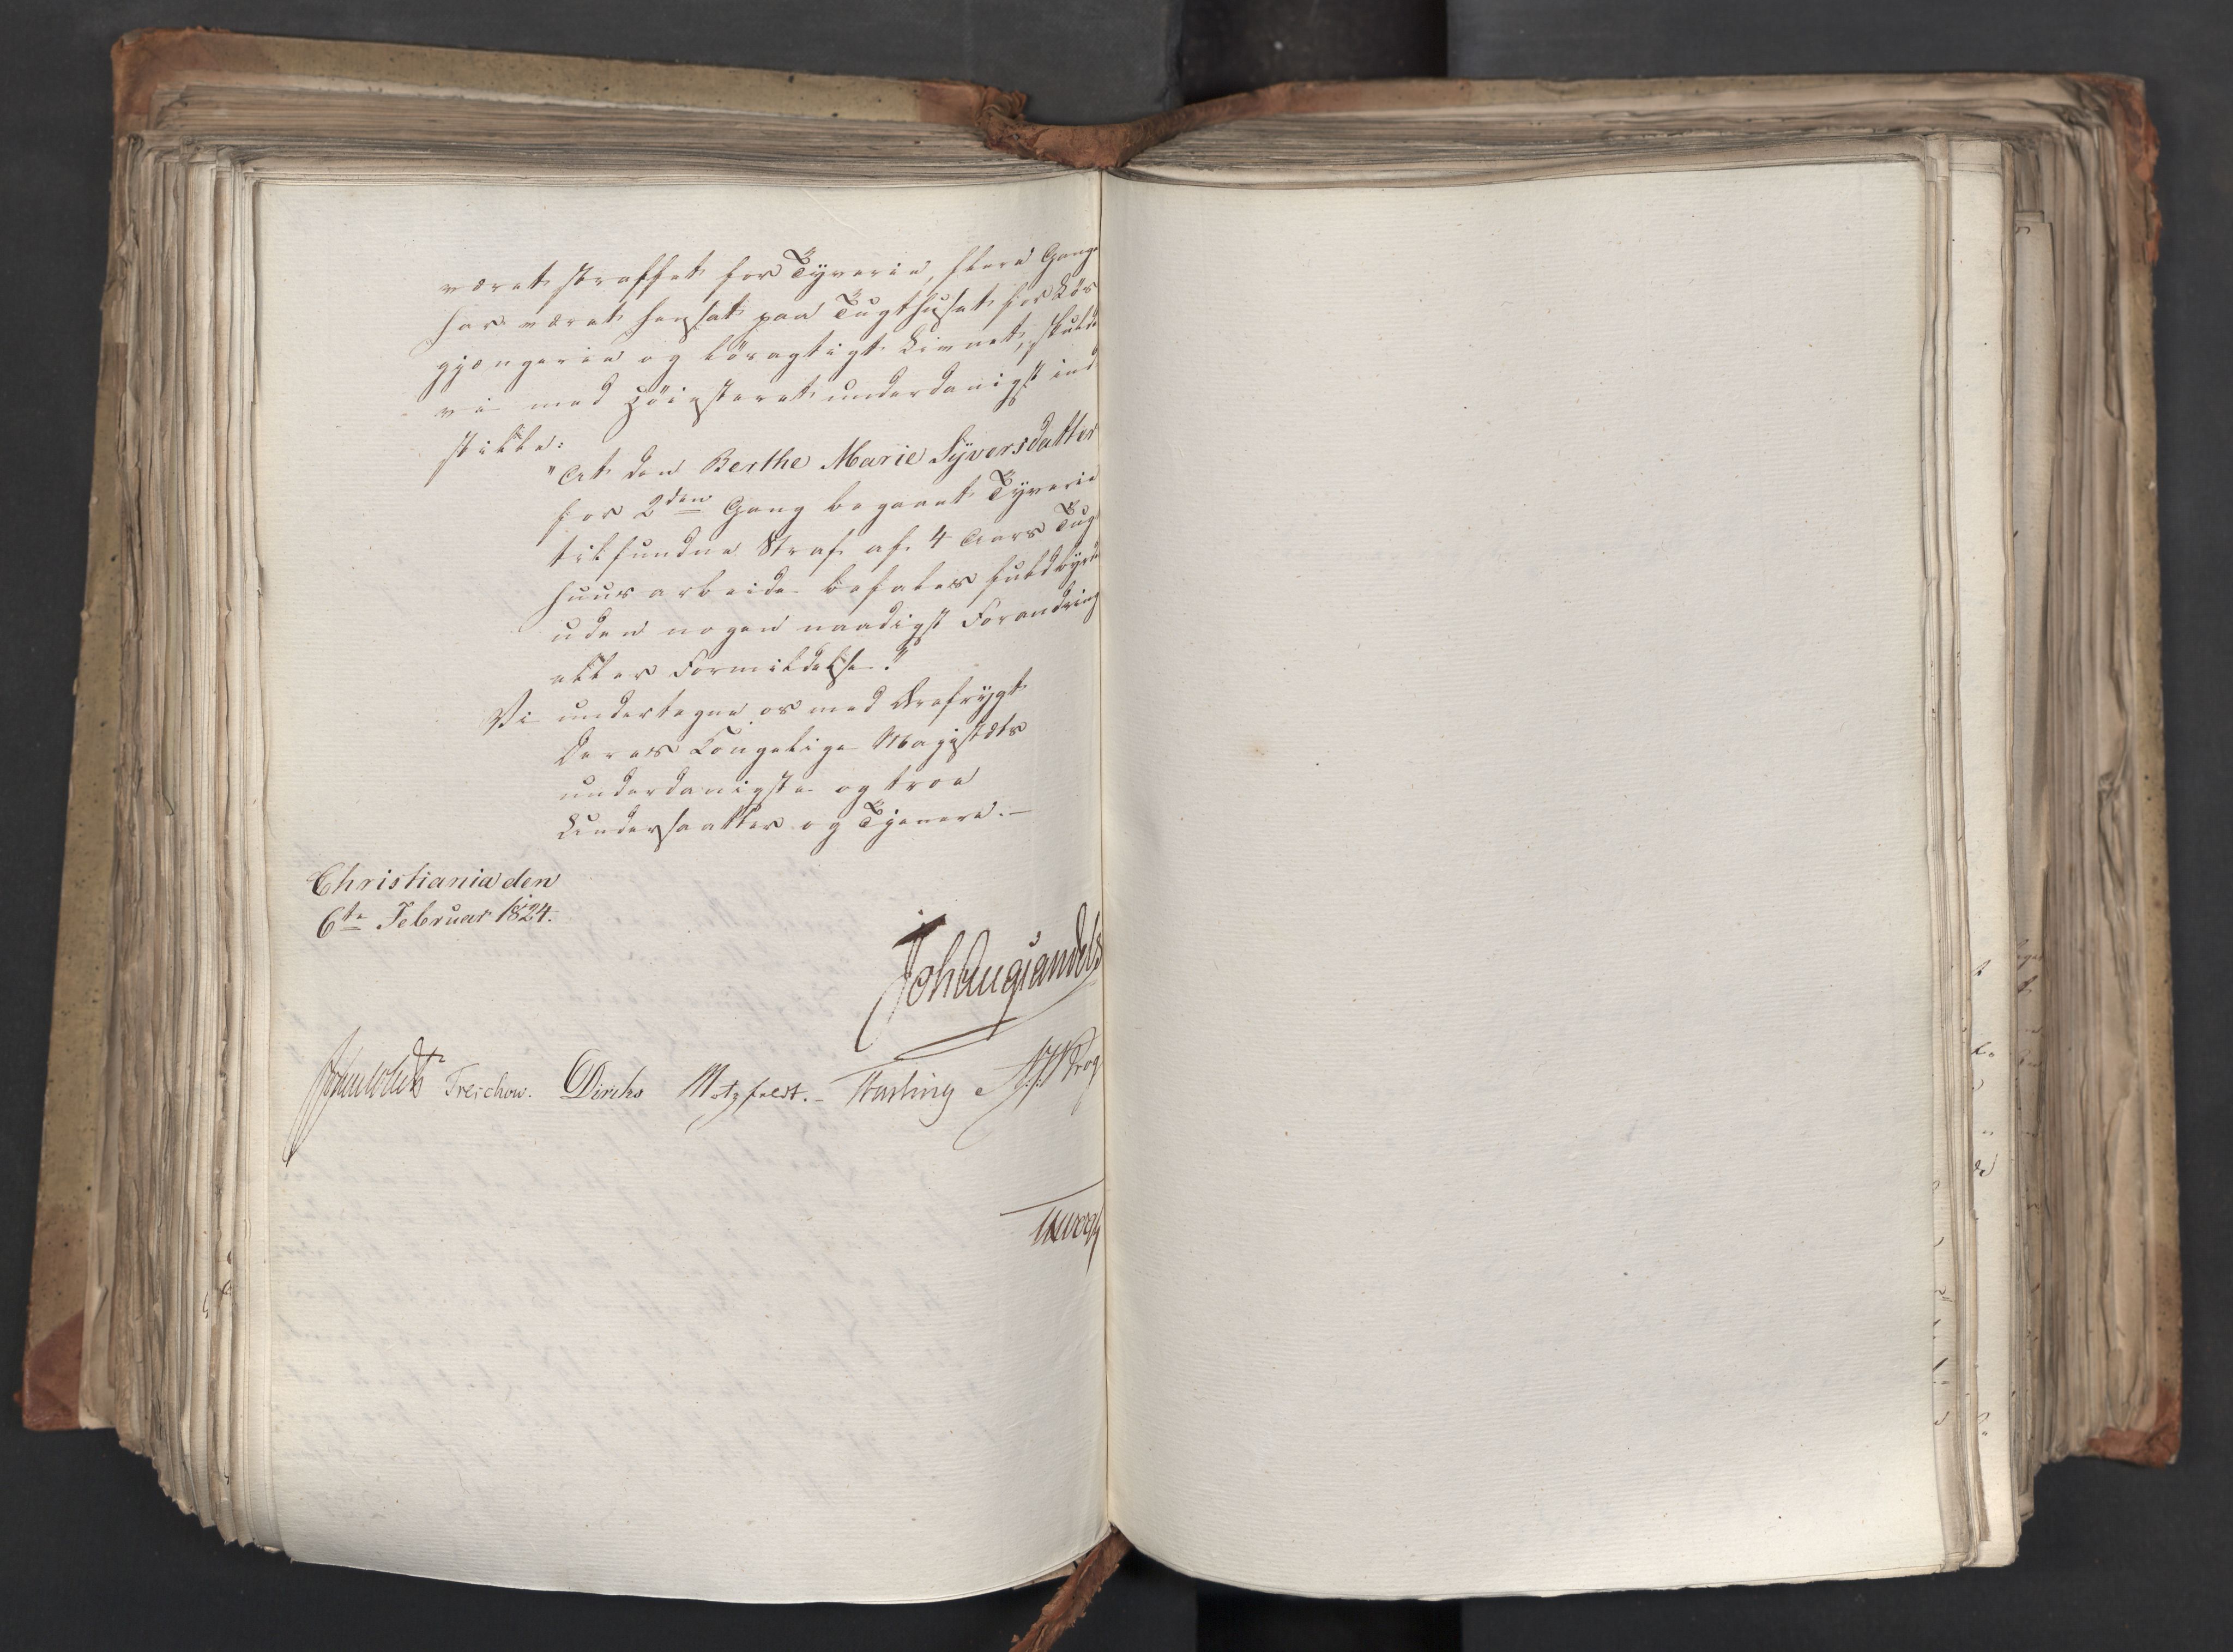 været straffet for Tyverie, flere Gange
har været hensat paa Tugthuset for Løs
gjængerie og løsagtigt Levnet, skulde
vi med Høiesteret underdanigst ind
stille:
"At den Berthe Marie Syversdatter
for 2den Gang begaaet Tyverie
tilfundne Straf af 4 Aars Tug
huusarbeide befales fuldbyrd
uden nogen naadigst Forandring
eller Formildelse."
Vi undertegne os med Ærefrygt
Deres Kongelige Majestæts
underdanigste og troe
Undersaatter og Tjenere.-
Christiania den
6te Februar 1824.
Joh Aug Sandels
Treschow. Diriks Motzfeldt. - Fasting